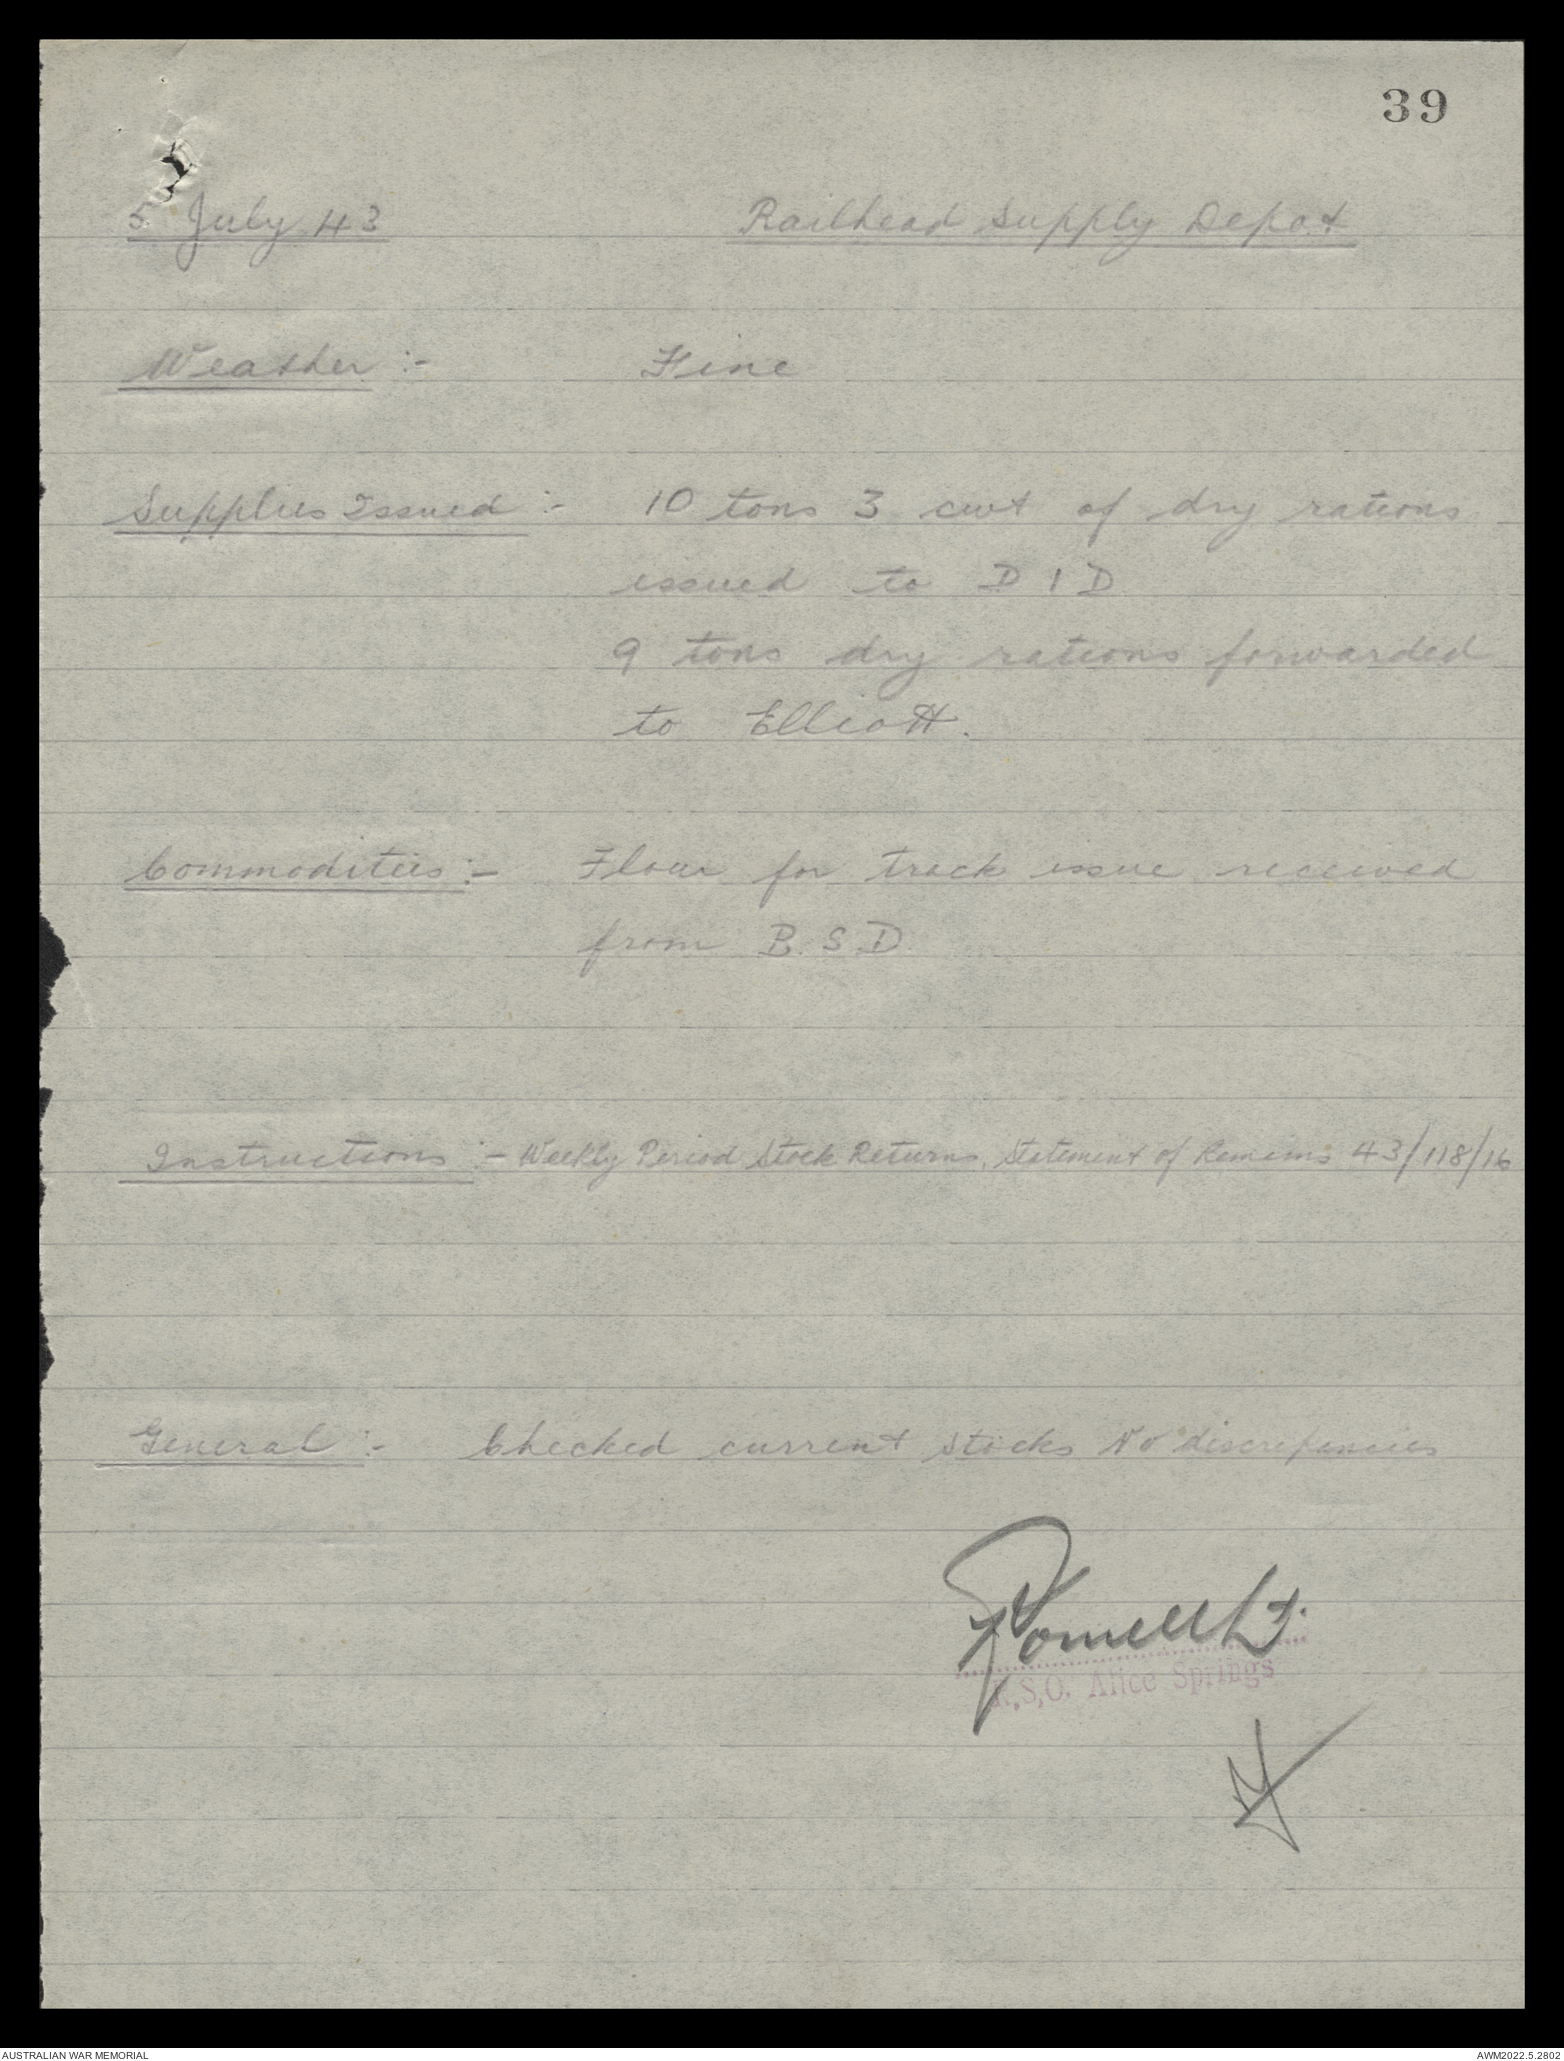 39
5 July 43 Railhead Supply Depot
Weather :- Fine
Supplies Issued :- 10 tons 3 cwt of dry rations
issued to D I D
9 tons dry rations forwarded
to Elliott.
Commodities :- Flour for track issue received
from B.S.D.
Instructions :- Weekly Period Stock Returns. Statement of Remains 43/118/16
General :- Checked current stocks No discrepancies
Lt.
R.S.O. Alice Springs
AUSTRALIAN WAR MEMORIAL AWM2022.5.2802